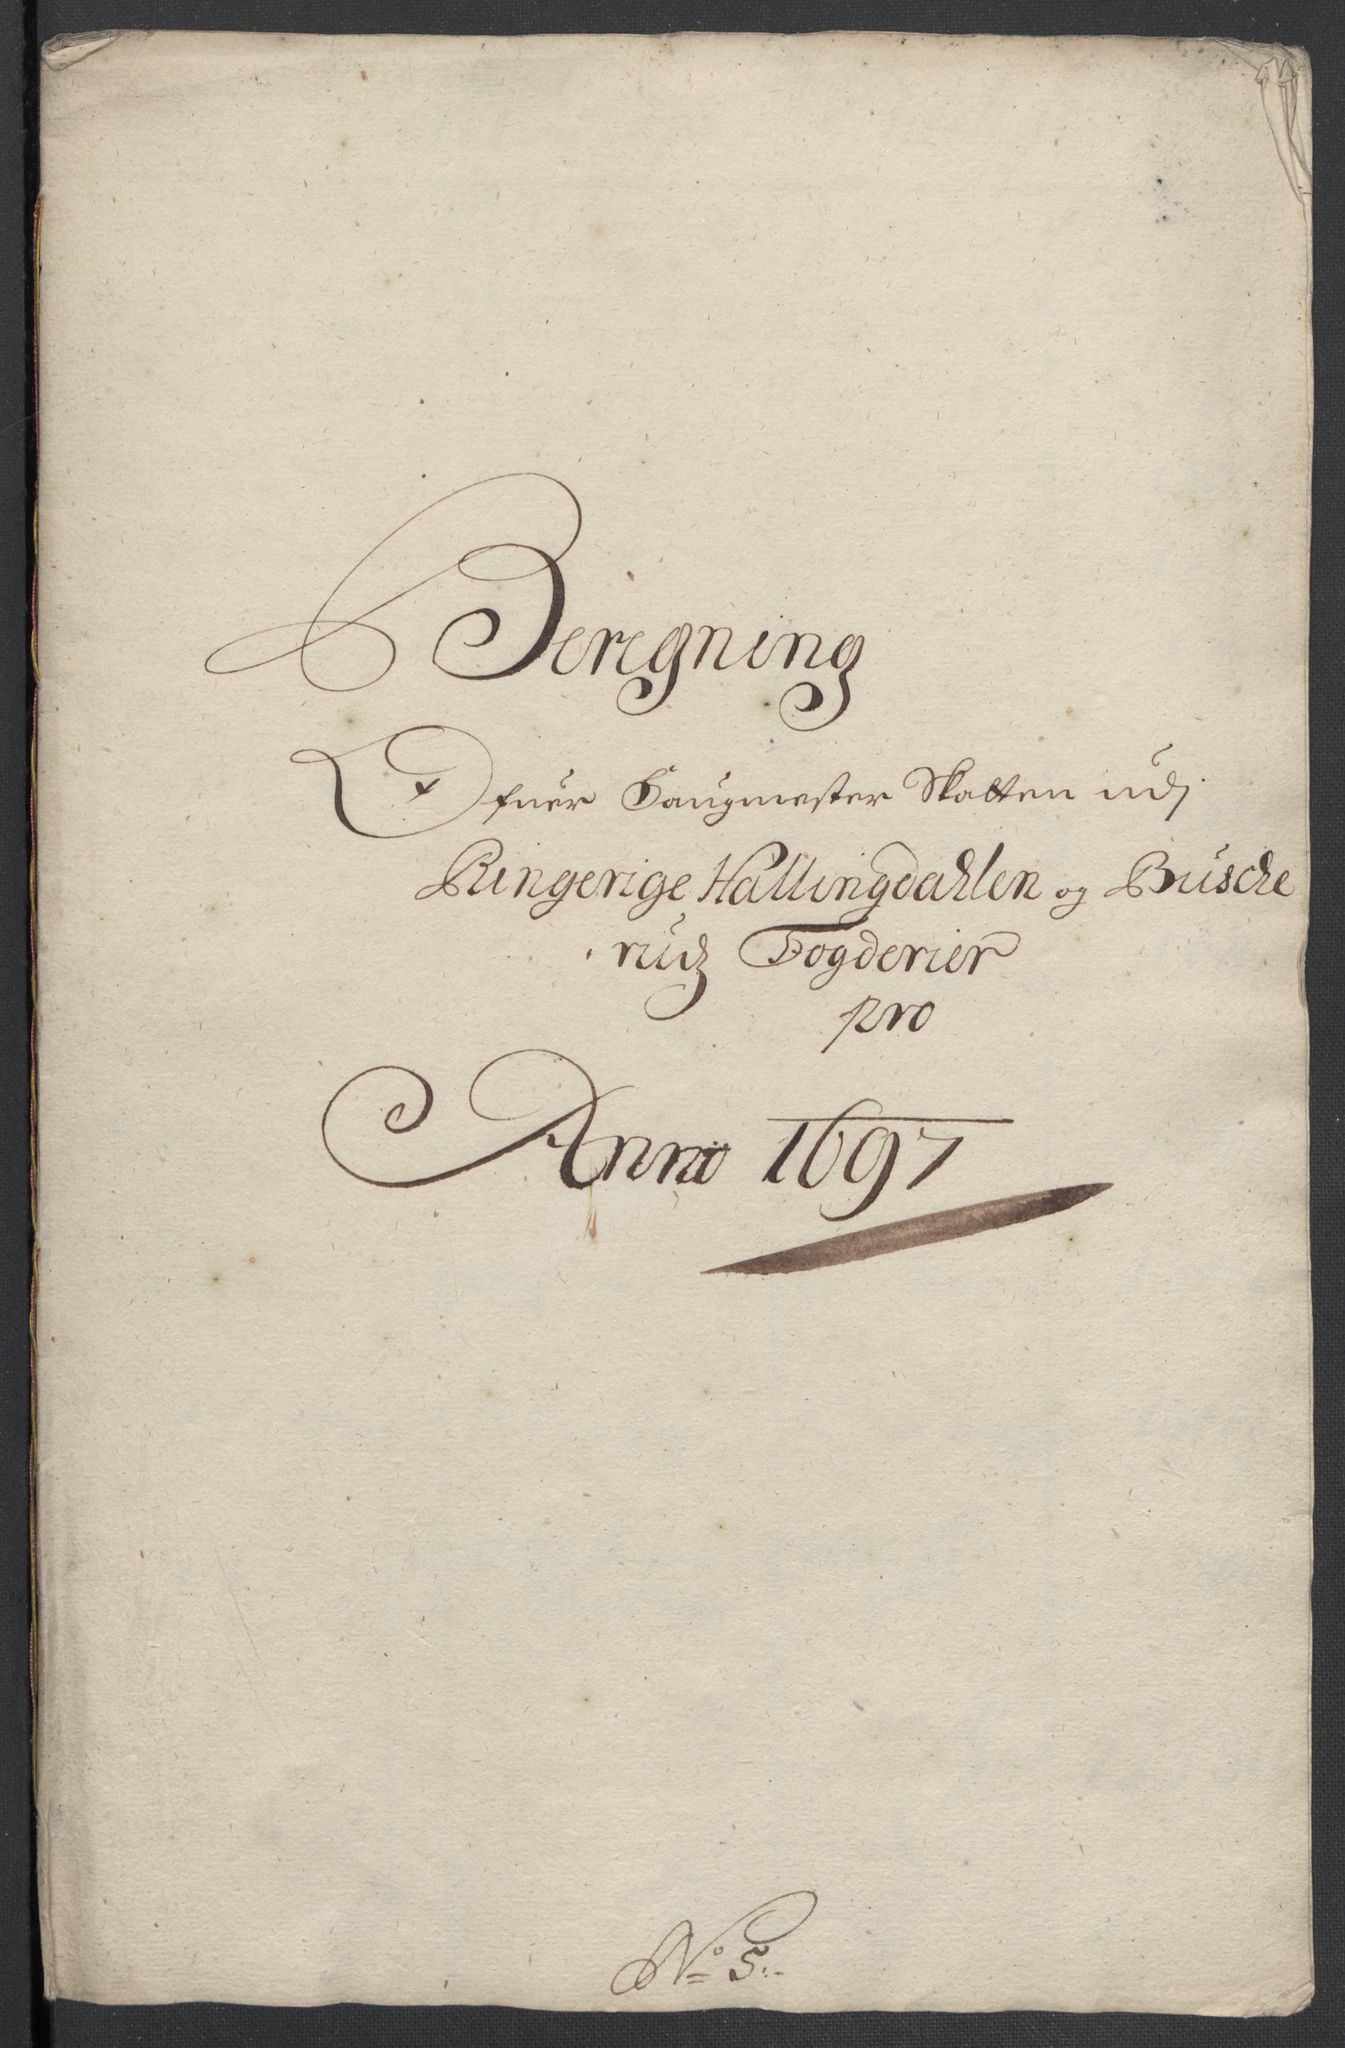 Beregning
Ofuer Saugmester Skatten udj
Ringerige Hallingdahlen og Busche
rudz Fogderier
pro
Anno 1697
No 5: